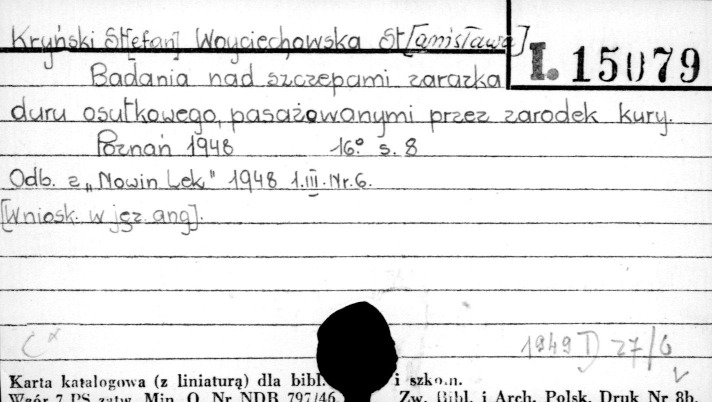 Kryński St[efan] Woyciechowska St[anisława]
I. 15079
Badania nad szczepami zarazka
duru osutkowego, pasażowanymi przez zarodek kury.
Poznań 1948 16° s. 8
Odb. z „Nowin Lek." 1948 t.III. Nr. 6.
[Wniosk. w jęz. ang].
1949 D 27/6
Karta katalogowa (z liniaturą) dla bibl. i szkoln.
Wzór 7 PS zatw. Min. O. Nr NDB 797/46 Zw. Bibl. i Arch. Polsk. Druk Nr 8b.